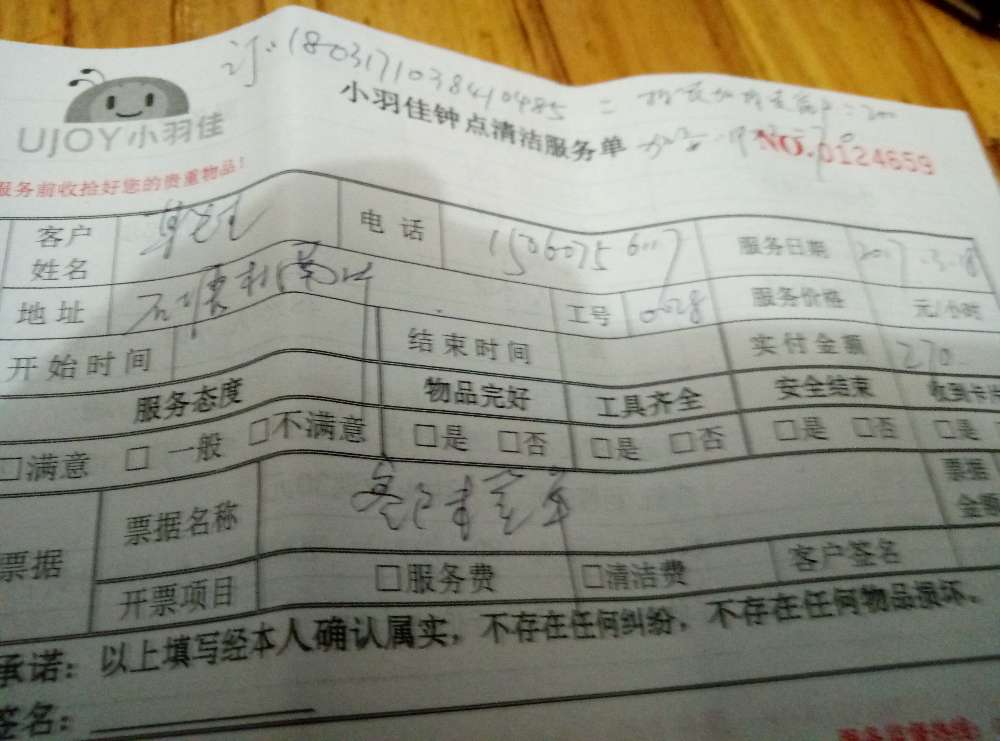 订: 1803171038410485
UJOY小羽佳
小羽佳钟点清洁服务单
NO.0124659
服务前收拾好您的贵重物品!
客户姓名
电话 1506075 6017 服务日期 2017.3.18
地址 南 工号 0028 服务价格 元/小时
开始时间 结束时间 实付金额 270
服务态度 物品完好 工具齐全 安全结束 收到卡片
□满意 □一般 □不满意 □是 □否 □是 □否 □是 □否 □是
票据 票据名称 票据金额
开票项目 □服务费 □清洁费 客户签名
承诺: 以上填写经本人确认属实,不存在任何纠纷,不存在任何物品损坏。
签名: